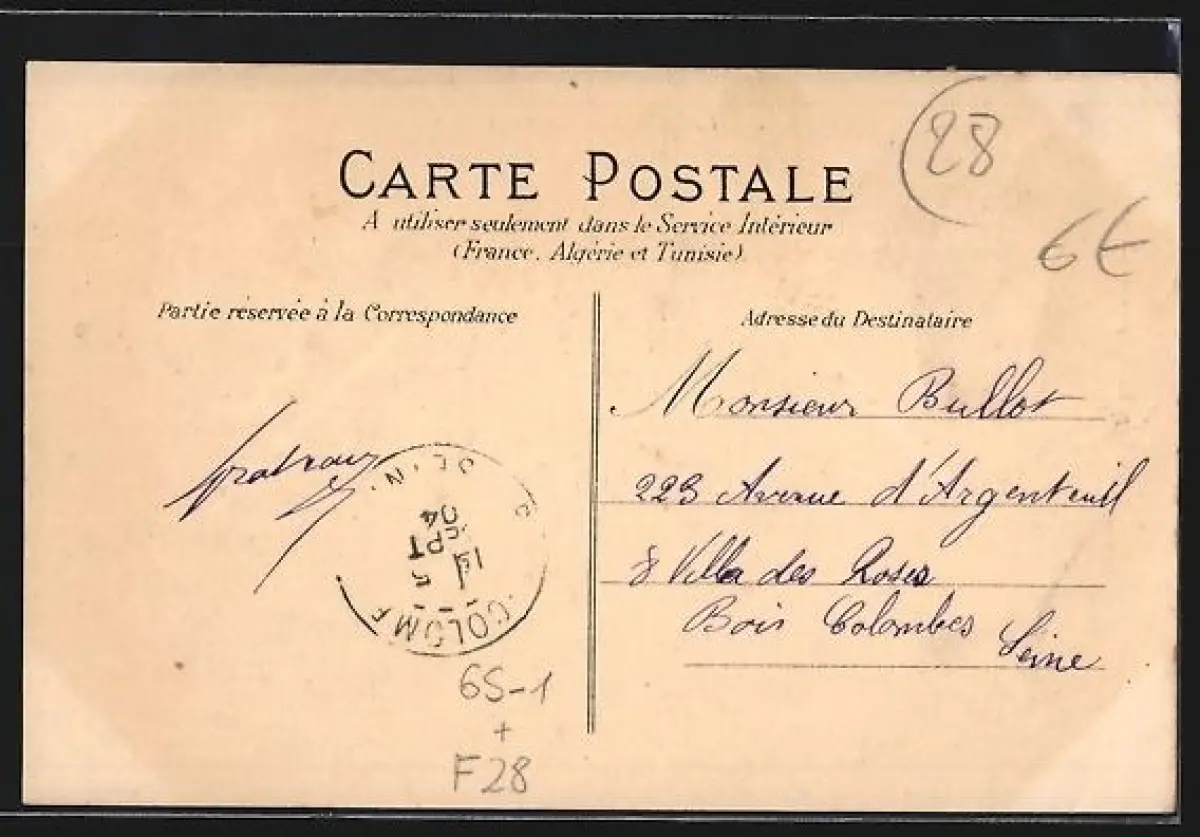 28
CARTE POSTALE
6€
A utiliser seulement dans le Service Intérieur
(France, Algérie et Tunisie)
Partie réservée à la Correspondance
Adresse du Destinataire
Monsieur Bullot
223 Avenue d'Argenteuil
8 Villa des Roses
Bois Colombes
Seine
5
SEPT
04
COLOMB
6S-1
+
F28